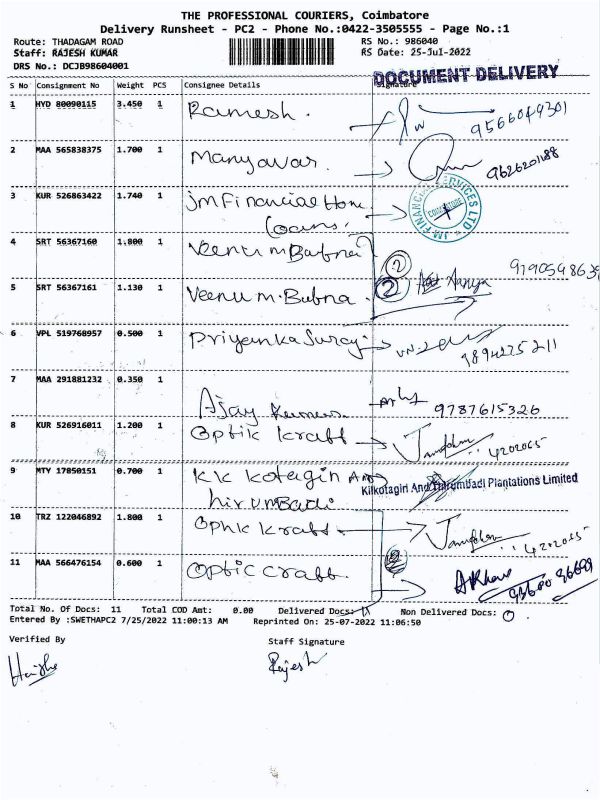 THE PROFESSIONAL COURIERS, Coimbatore
Delivery Runsheet - PC2 - Phone No.:0422-3505555 - Page No.:1
Route: THADAGAM ROAD RS No.: 986040
Staff: RAJESH KUMAR RS Date: 25-Jul-2022
DRS No.: DCJB98604001
DOCUMENT DELIVERY
S No Consignment No Weight PCS Consignee Details Signature
1 HYD 80090115 3.450 1 Ramesh. 9566049301
2 MAA 565838375 1.700 1 Manyavar. 9626201188
3 KUR 526863422 1.740 1 jm Financial Home
Loans.
JM FINANCIAL SERVICES LTD COIMBATORE
4 SRT 56367160 1.800 1 Veenu m Bubna 2
5 SRT 56367161 1.130 1 Veenu m. Bubna. 2
6 VPL 519768957 0.500 1 Priyanka Suraj 9894275211
7 MAA 291881232 0.350 1 Ajay 9787615326
8 KUR 526916011 1.200 1 Optik kraft 4202065
9 MTY 17850151 0.700 1 KK kotagiri And
hirumBadi
Kilkotagiri And Thirumbadi Plantations Limited
10 TRZ 122046892 1.800 1 Optik kraft. 4202065
11 MAA 566476154 0.600 1 Optic craft. 2
Total No. Of Docs: 11 Total COD Amt: 0.00 Delivered Docs: 11 Non Delivered Docs: 0
Entered By :SWETHAPC2 7/25/2022 11:00:13 AM Reprinted On: 25-07-2022 11:06:50
Verified By Staff Signature
Rajesh